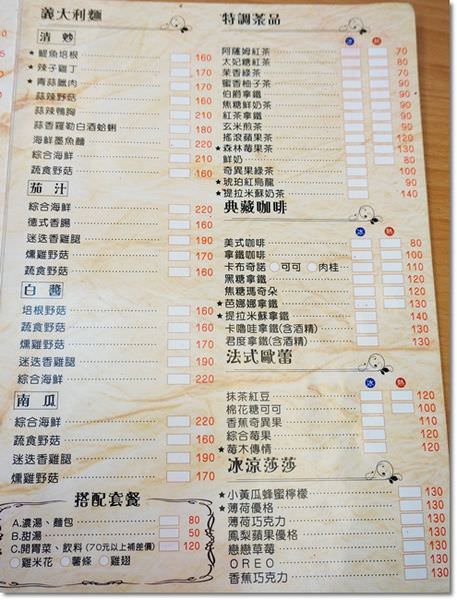 義大利麵
清炒
★鯷魚培根 160
★辣子雞丁 160
★青蒜臘肉 170
蒜辣野菇 160
蒜辣鴨胸 210
蒜香羅勒白酒蛤蜊 180
海鮮墨魚麵 220
綜合海鮮 210
蔬食野菇 160
茄汁
綜合海鮮 220
德式香腸 160
迷迭香雞腿 190
燻雞野菇 170
蔬食野菇 160
白醬
培根野菇 160
蔬食野菇 160
燻雞野菇 170
迷迭香雞腿 190
綜合海鮮 220
南瓜
綜合海鮮 220
蔬食野菇 160
迷迭香雞腿 190
燻雞野菇 170
搭配套餐
A.濃湯、麵包 80
B.甜湯 50
C.開胃菜、飲料(70元以上補差價) 120
○雞米花 ○薯條 ○雞翅
特調茶品
冰 熱
阿薩姆紅茶 70
太妃糖紅茶 80
茉香綠茶 70
蜜香柚子茶 90
伯爵拿鐵 90
焦糖鮮奶茶 90
紅茶拿鐵 90
玄米煎茶 90
搖滾蘋果茶 100
★森林莓果茶 130
鮮奶 80
奇異果綠茶 100
★琥珀紅烏龍 90
★提拉米蘇奶茶 140
典藏咖啡
冰 熱
美式咖啡 80
拿鐵咖啡 100
卡布奇諾 ○可可 ○肉桂 110
黑糖拿鐵 110
焦糖瑪奇朵 120
★芭娜娜拿鐵 130
★提拉米蘇拿鐵 140
卡嚕哇拿鐵(含酒精) 130
君度拿鐵(含酒精) 130
法式歐蕾
冰 熱
抹茶紅豆 120
棉花糖可可 100
香蕉奇異果 130
綜合莓果 120
★莓木傳情 120
冰涼莎莎
★小黃瓜蜂蜜檸檬 130
★薄荷優格 130
薄荷巧克力 130
鳳梨蘋果優格 130
戀戀草莓 130
OREO 130
香蕉巧克力 130